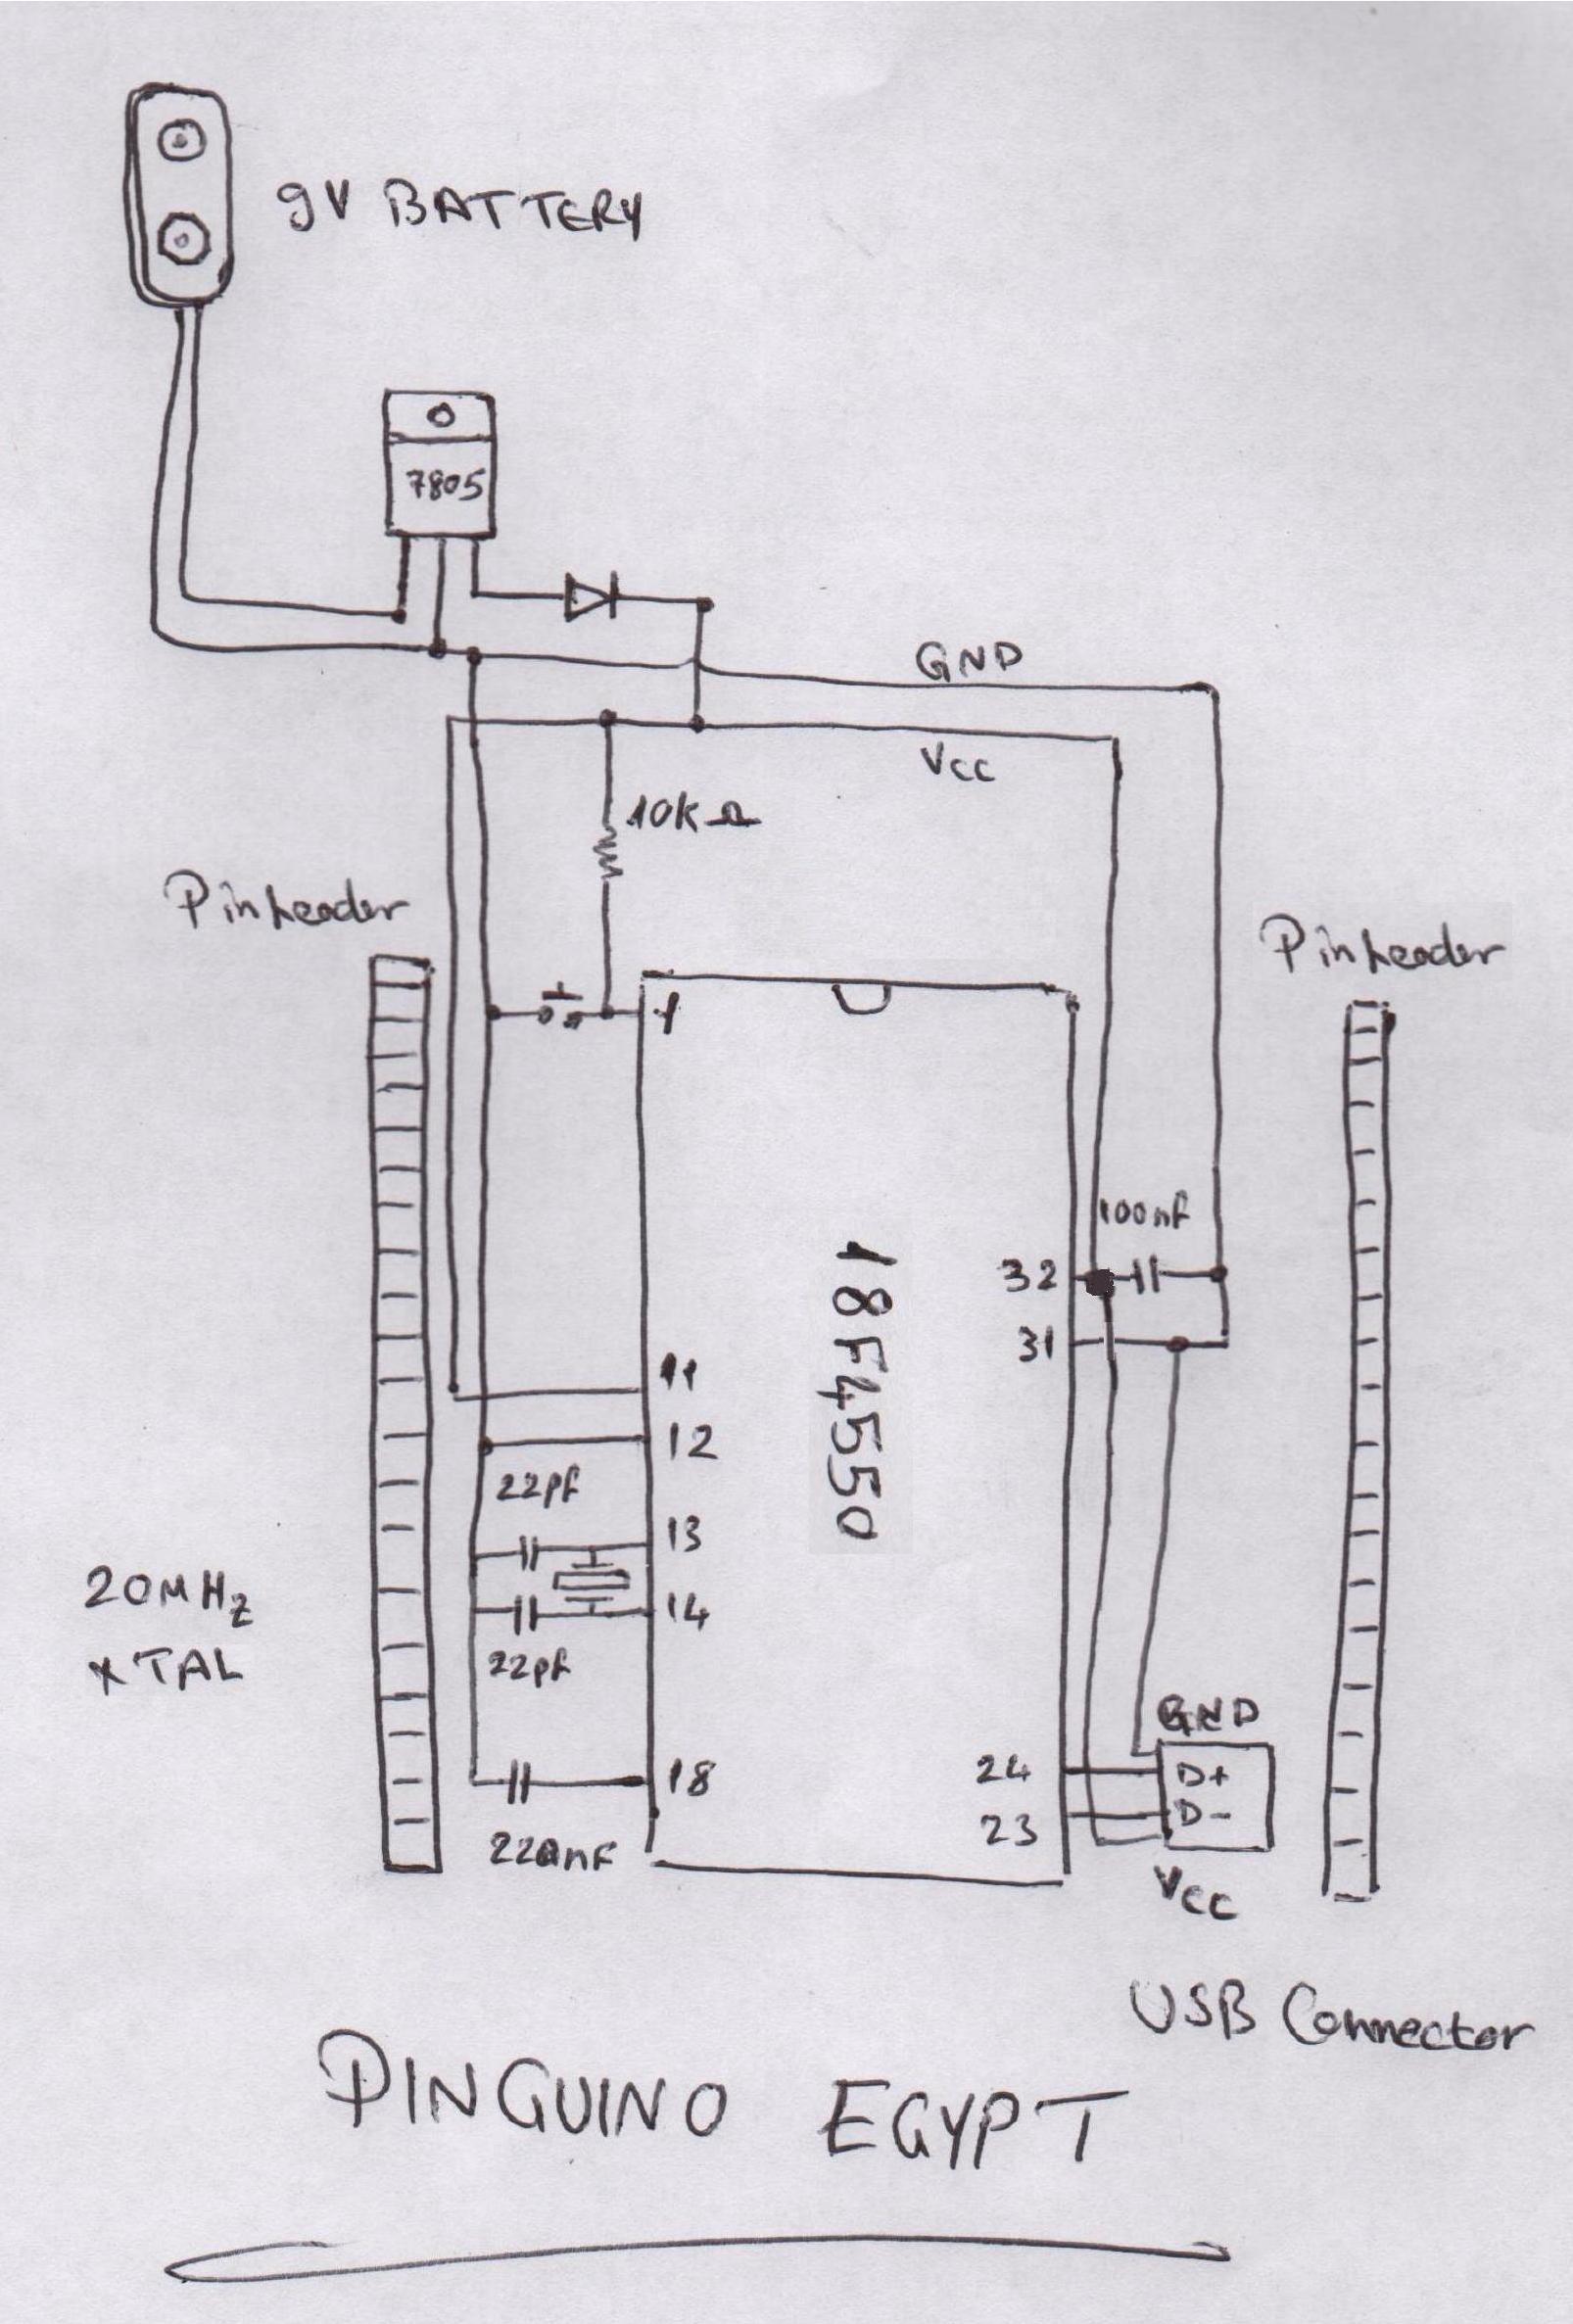 9V BATTERY
7805
GND
Vcc
10KΩ
Pinheader
Pinheader
1
100nf
32
31
18F4550
11
12
22pf
13
20MHz
XTAL
14
22pf
GND
24
D+
18
D-
23
220nF
Vcc
USB Connector
PINGUINO EGYPT